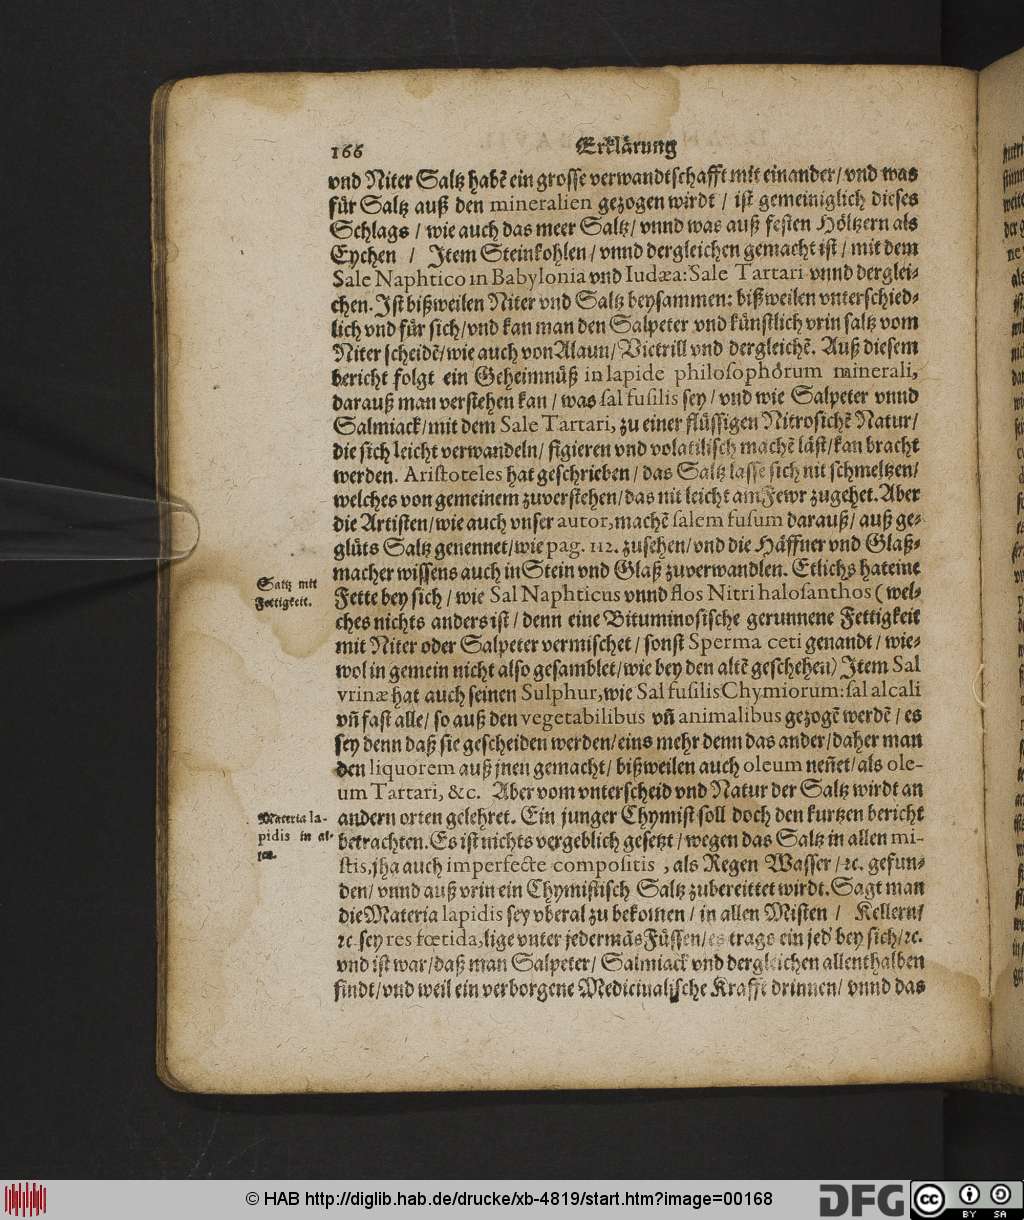 166 Erklärung
vnd Niter Saltz habẽ ein grosse verwandtschafft mit einander / vnd was
für Saltz auß den mineralien gezogen wirdt / ist gemeiniglich dieses
Schlags / wie auch das meer Saltz / vnnd was auß festen Höltzern als
Eychen / Item Steinkohlen / vnnd dergleichen gemacht ist / mit dem
Sale Naphtico in Babylonia vnd Iudæa: Sale Tartari vnnd derglei-
chen. Ist bißweilen Niter vnd Saltz beysammen: bißweilen vnterschied-
lich vnd für sich / vnd kan man den Salpeter vnd künstlich vrin saltz vom
Niter scheidẽ / wie auch von Alaun / Victrill vnd dergleichẽ. Auß diesem
bericht folgt ein Geheimnüß in lapide philosophórum minerali,
darauß man verstehen kan / was sal fusilis sey / vnd wie Salpeter vnnd
Salmiack / mit dem Sale Tartari, zu einer flüssigen Nitrosichẽ Natur /
die sich leicht verwandeln / figieren vnd volatilisch machẽ läst / kan bracht
werden. Aristoteles hat geschrieben / das Saltz lasse sich nit schmeltzen /
welches von gemeinem zuverstehen / das nit leicht am Fewr zugehet. Aber
die Artisten / wie auch vnser autor, machẽ salem fusum darauß / auß ge-
glüts Saltz genennet / wie pag. 112. zusehen / vnd die Häffner vnd Glaß-
macher wissens auch in Stein vnd Glaß zuverwandlen. Etlichs hat eine
Saltz mit
Fettigkeit.
Fette bey sich / wie Sal Naphticus vnnd flos Nitri halosanthos (wel-
ches nichts anders ist / denn eine Bituminosische gerunnene Fettigkeit
mit Niter oder Salpeter vermischet / sonst Sperma ceti genandt / wie-
wol in gemein nicht also gesamblet / wie bey den altẽ geschehen) Item Sal
vrinæ hat auch seinen Sulphur, wie Sal fusilis Chymiorum: sal alcali
vñ fast alle / so auß den vegetabilibus vñ animalibus gezogẽ werdẽ / es
sey denn daß sie gescheiden werden / eins mehr denn das ander / daher man
den liquorem auß jnen gemacht / bißweilen auch oleum neñet / als ole-
um Tartari, &c. Aber vom vnterscheid vnd Natur der Saltz wirdt an
Materia la-
pidis in al-
len.
andern orten gelehret. Ein junger Chymist soll doch den kurtzen bericht
betrachten. Es ist nichts vergeblich gesetzt / wegen das Saltz in allen mi-
stis, jha auch imperfecte compositis, als Regen Wasser / ꝛc. gefun-
den / vnnd auß vrin ein Chymistisch Saltz zubereittet wirdt. Sagt man
die Materia lapidis sey vberal zu bekom̃en / in allen Misten / Kellern /
ꝛc. sey res fœtida, lige vnter jedermãs Füssen / es trags ein jed' bey sich / ꝛc.
vnd ist war / daß man Salpeter / Salmiack vnd dergleichen allenthalben
findt / vnd weil ein verborgene Medicinalische Krafft drinnen / vnnd das
© HAB http://diglib.hab.de/drucke/xb-4819/start.htm?image=00168
DFG
cc BY SA